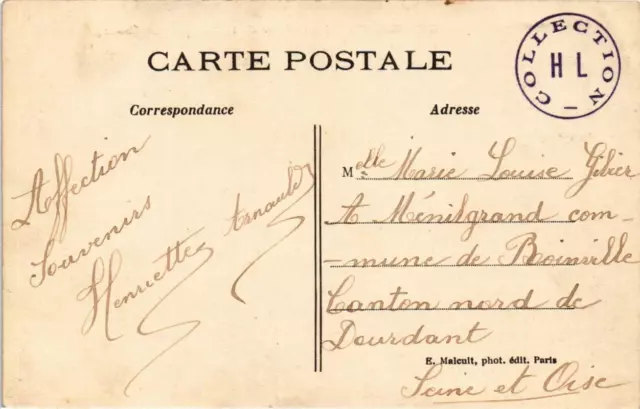 CARTE POSTALE
COLLECTION
H L
Correspondance
Adresse
Affection
Souvenirs
Henriette Arnauld
Melle Marie Louise Gibier
A Ménilgrand com-
-mune de Boinville
Canton nord de
Dourdant
E. Malcuit, phot. édit. Paris
Seine et Oise